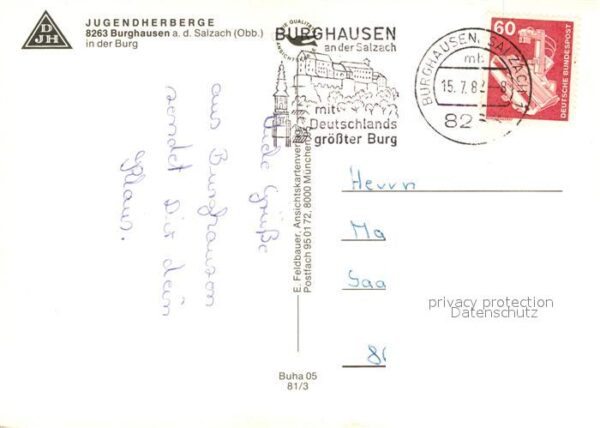 DJH
JUGENDHERBERGE
8263 Burghausen a. d. Salzach (Obb.)
in der Burg
BURGHAUSEN
an der Salzach
mit
Deutschlands
größter Burg
BURGHAUSEN, SALZACH 1
mb
15.7.82
82
60
DEUTSCHE BUNDESPOST
Viele Grüße
aus Burghausen
sendet Dir dein
Klaus.
E. Feldbauer, Ansichtskartenverlag
Postfach 95 01 72, 8000 München 95
Herrn
Ma
Saa
privacy protection
Datenschutz
8
Buha 05
81/3